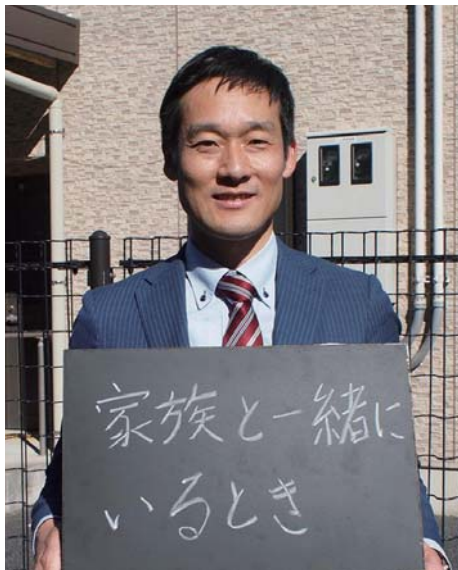 家族と一緒に
いるとき